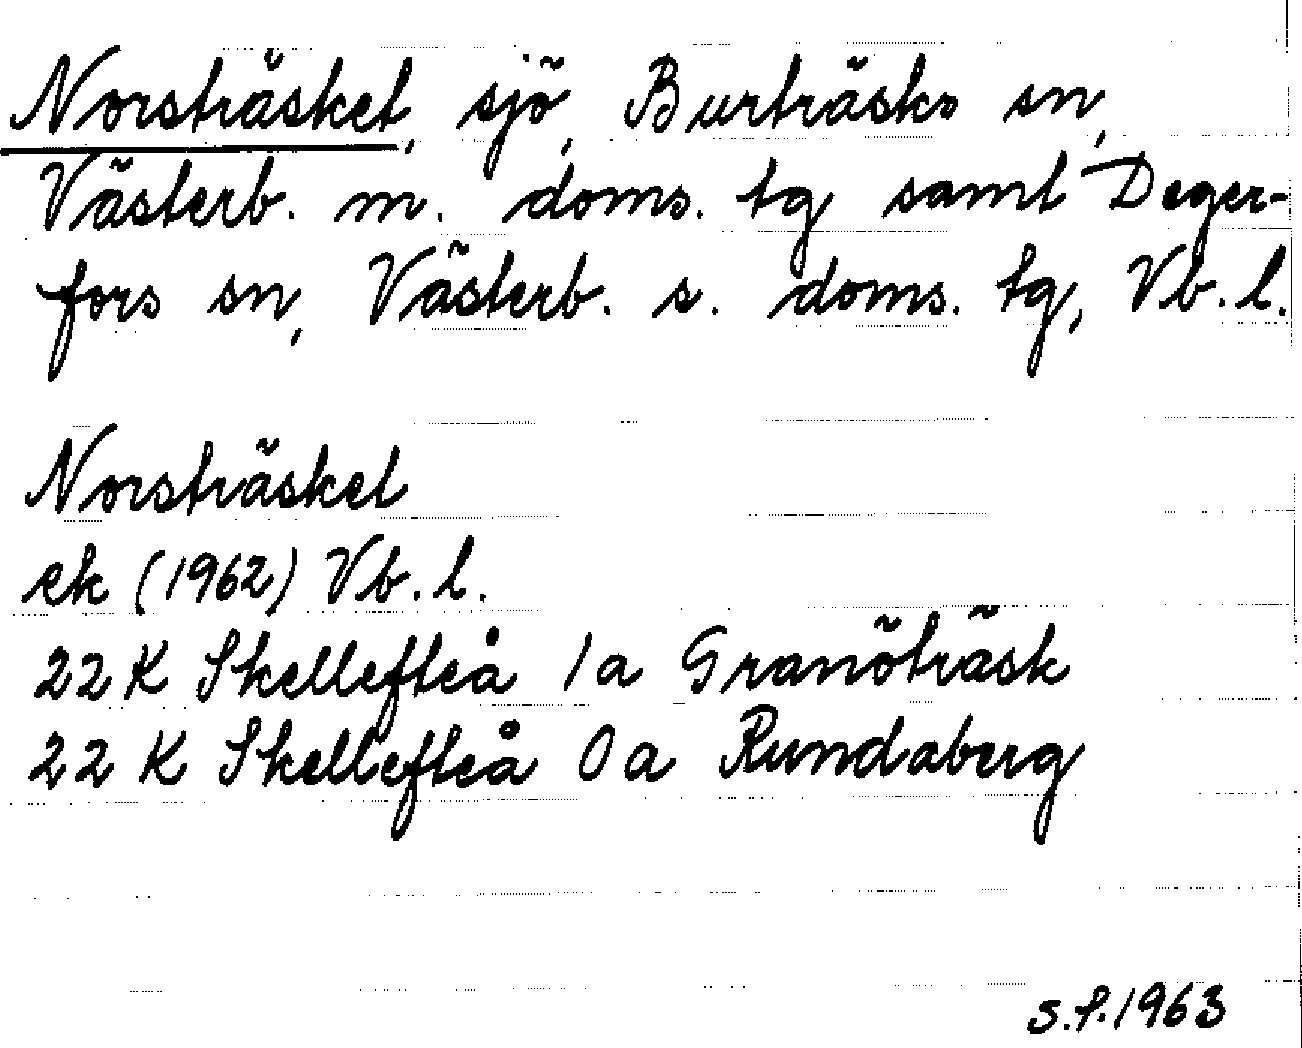 Norsträsket, sjö, Burträsks sn,
Västerb. m. doms. tg samt Deger-
fors sn, Västerb. s. doms. tg, Vb. l.
Norsträsket
ek (1962) Vb. l.
22 K Skellefteå 1a Granöträsk
22 K Skellefteå 0a Rundaberg
S.P. 1963